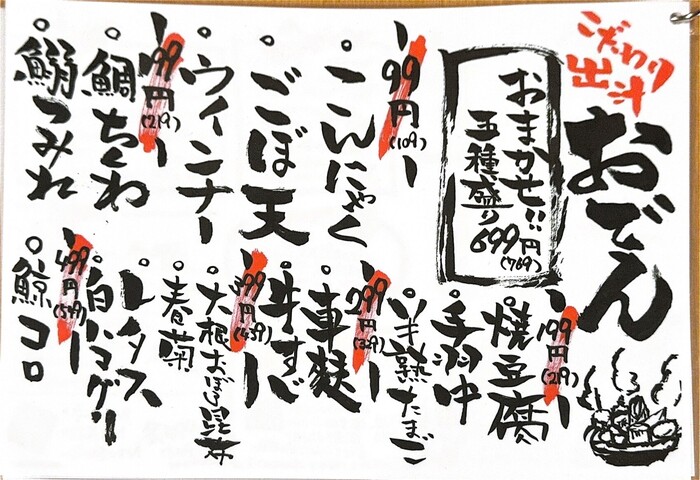 こだわり
出汁
おでん
おまかせ!!
五種盛り
699円(769)
99円(109)
こんにゃく
ごぼ天
ウインナー
199円(219)
鯛ちくわ
鰯つみれ
199円(219)
焼豆腐
手羽中
半熟たまご
299円(329)
車麩
牛すじ
399円(439)
大根おぼろ昆布
春菊
レタス
白ハマグリ
499円(549)
鯨コロ